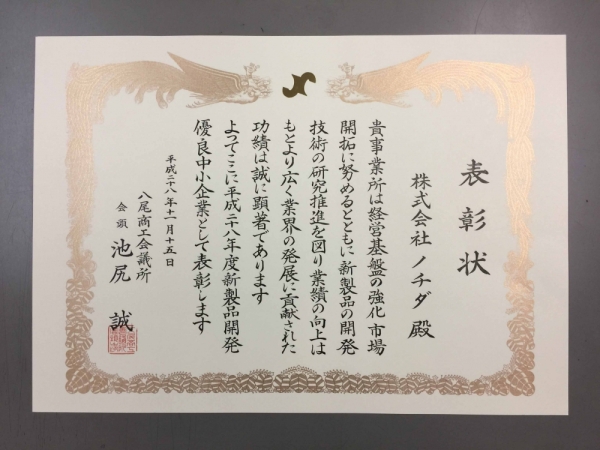 表彰状
株式会社 ノチダ 殿
貴事業所は経営基盤の強化 市場
開拓に努めるとともに 新製品の開発
技術の研究推進を図り 業績の向上は
もとより広く業界の発展に貢献された
功績は誠に顕著であります
よってここに平成二十八年度新製品開発
優良中小企業として表彰します
平成二十八年十一月十五日
八尾商工会議所
会頭 池尻 誠